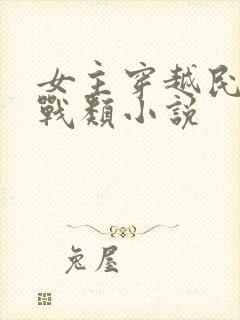 女主穿越民
戰類小說
兔屋